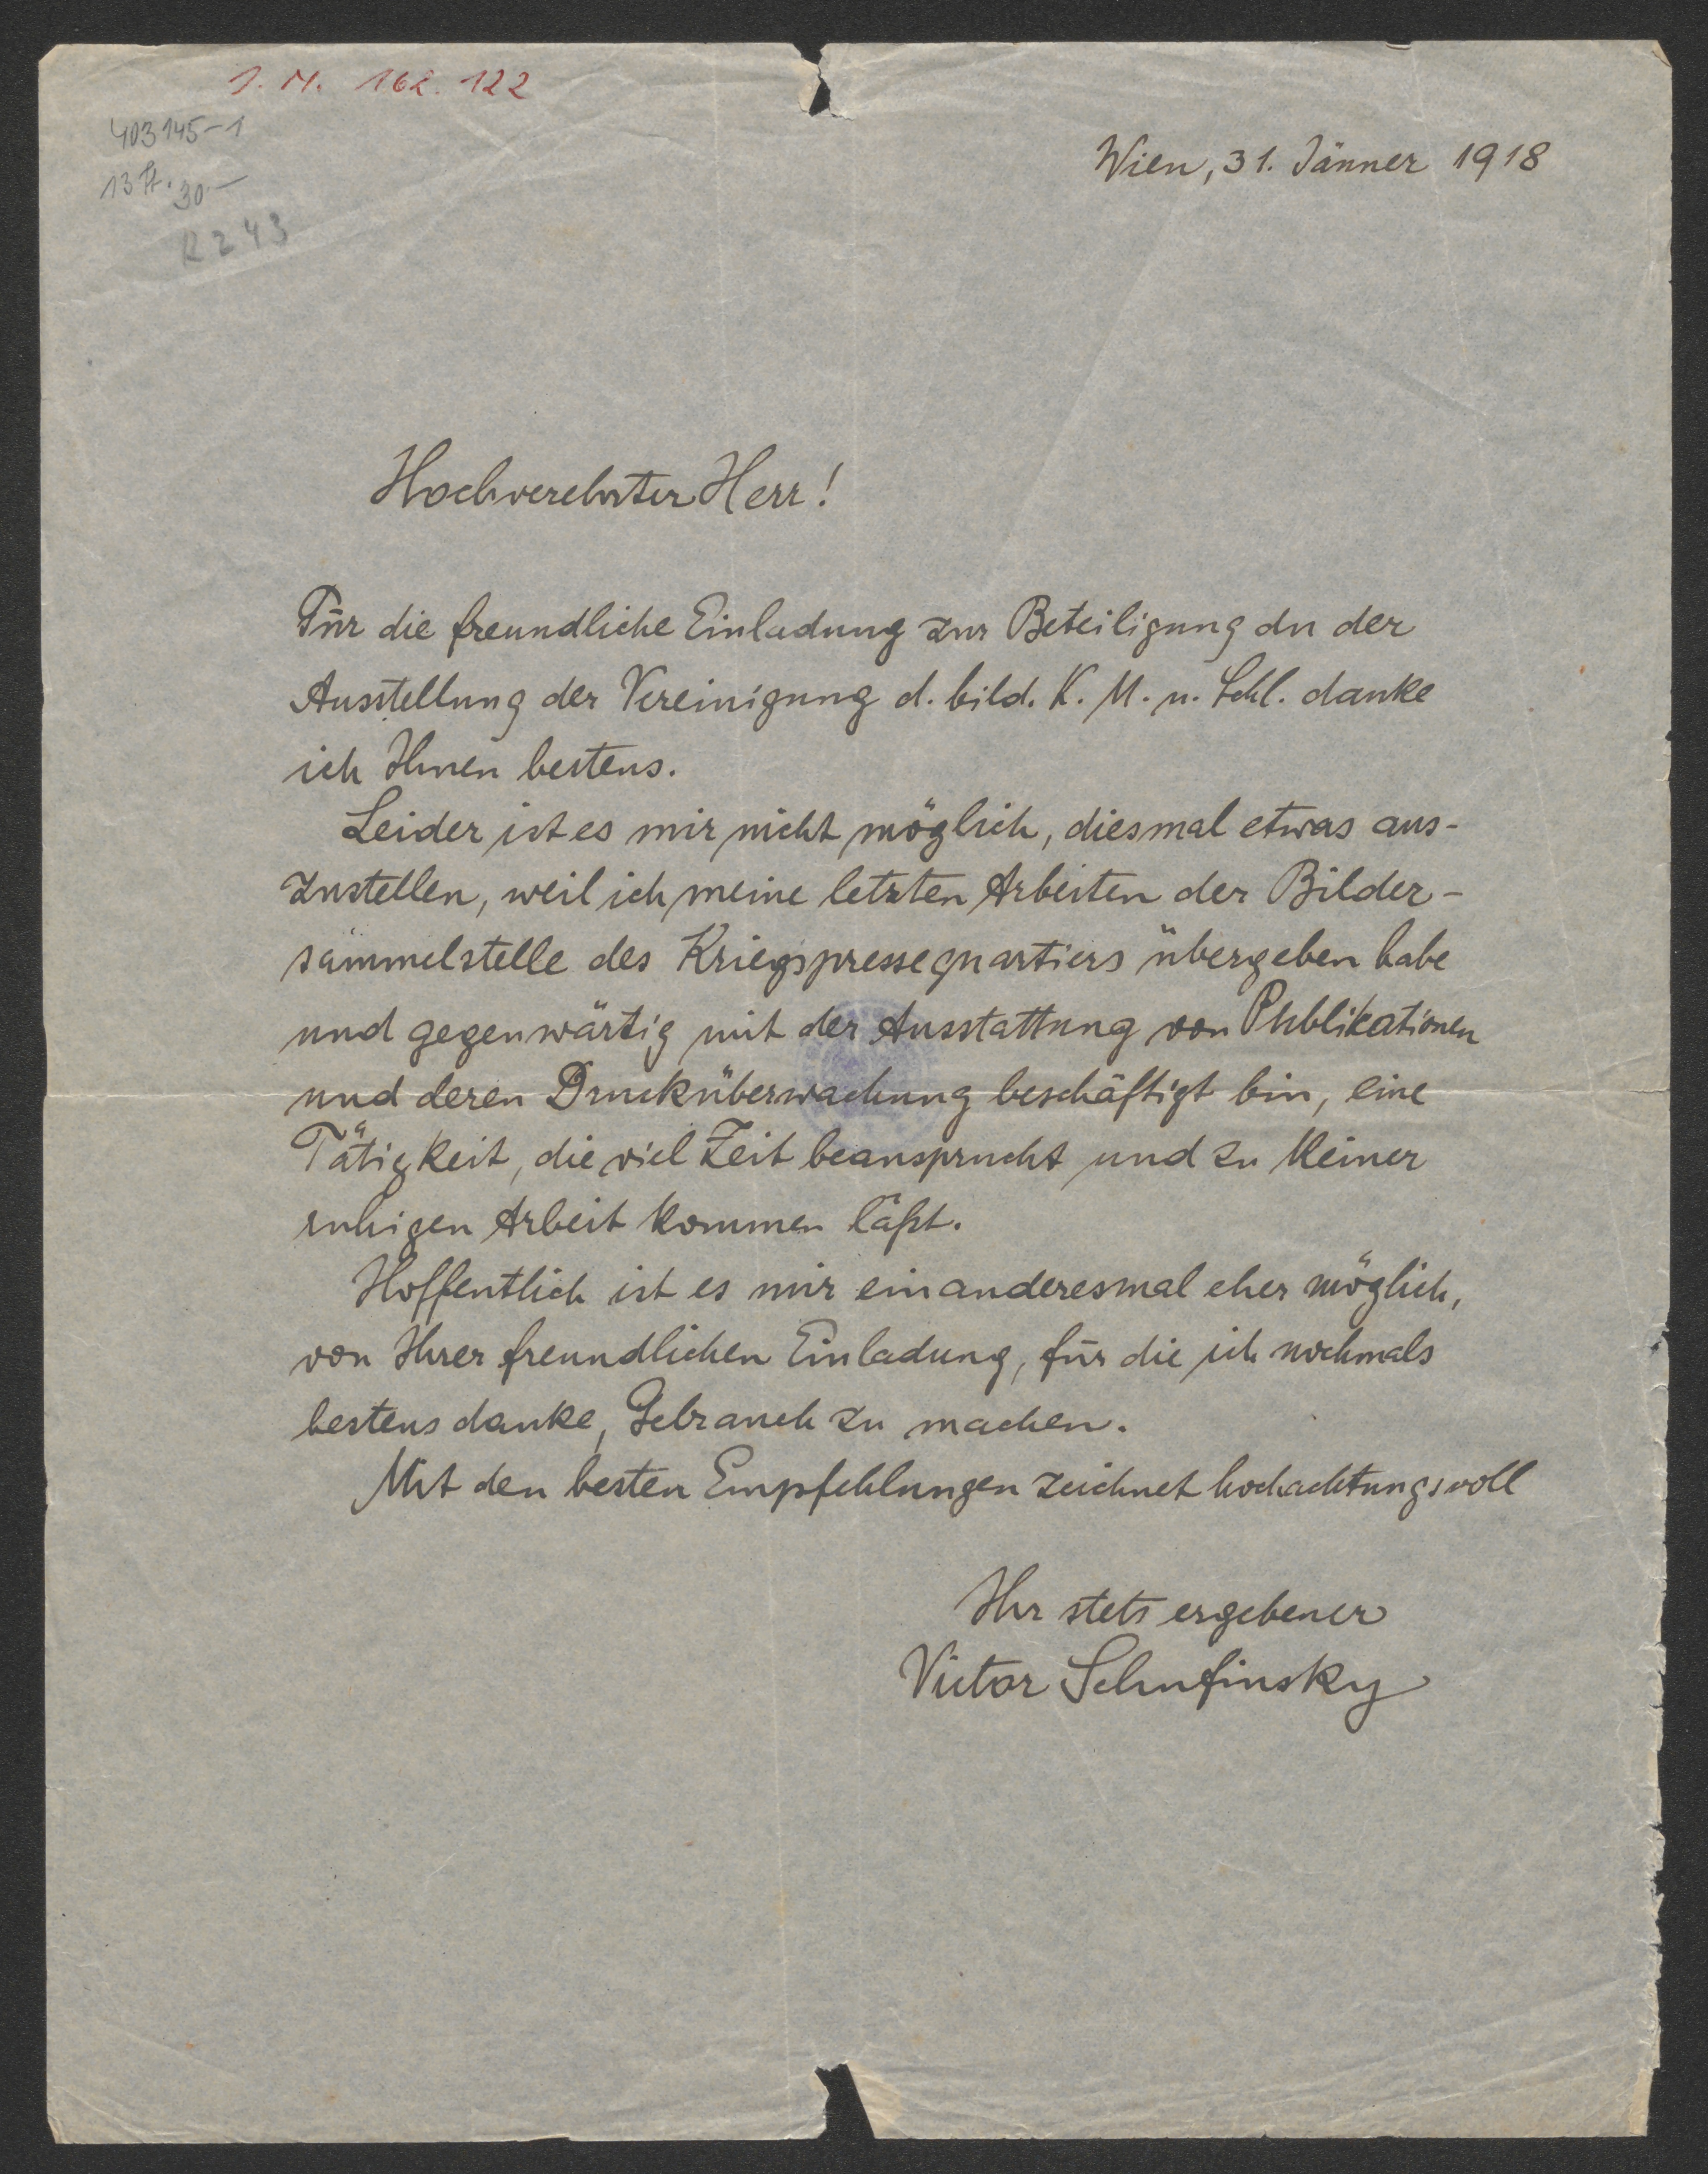 J. N. 162.122
403145-1
13 St. 30.-
R 243
Wien, 31. Jänner 1918
Hochverehrter Herr!
Für die freundliche Einladung zur Beteiligung an der
Ausstellung der Vereinigung d. bild. K. M. u. Schl. danke
ich Ihnen bestens.
Leider ist es mir nicht möglich, diesmal etwas aus-
zustellen, weil ich meine letzten Arbeiten der Bilder-
sammelstelle des Kriegspressequartiers übergeben habe
und gegenwärtig mit der Ausstattung von Publikationen
und deren Drucküberwachung beschäftigt bin, eine
Tätigkeit, die viel Zeit beansprucht und zu keiner
ruhigen Arbeit kommen läßt.
Hoffentlich ist es mir ein anderesmal eher möglich,
von Ihrer freundlichen Einladung, für die ich nochmals
bestens danke, Gebrauch zu machen.
Mit den besten Empfehlungen zeichnet hochachtungsvoll
Ihr stets ergebener
Victor Schufinsky